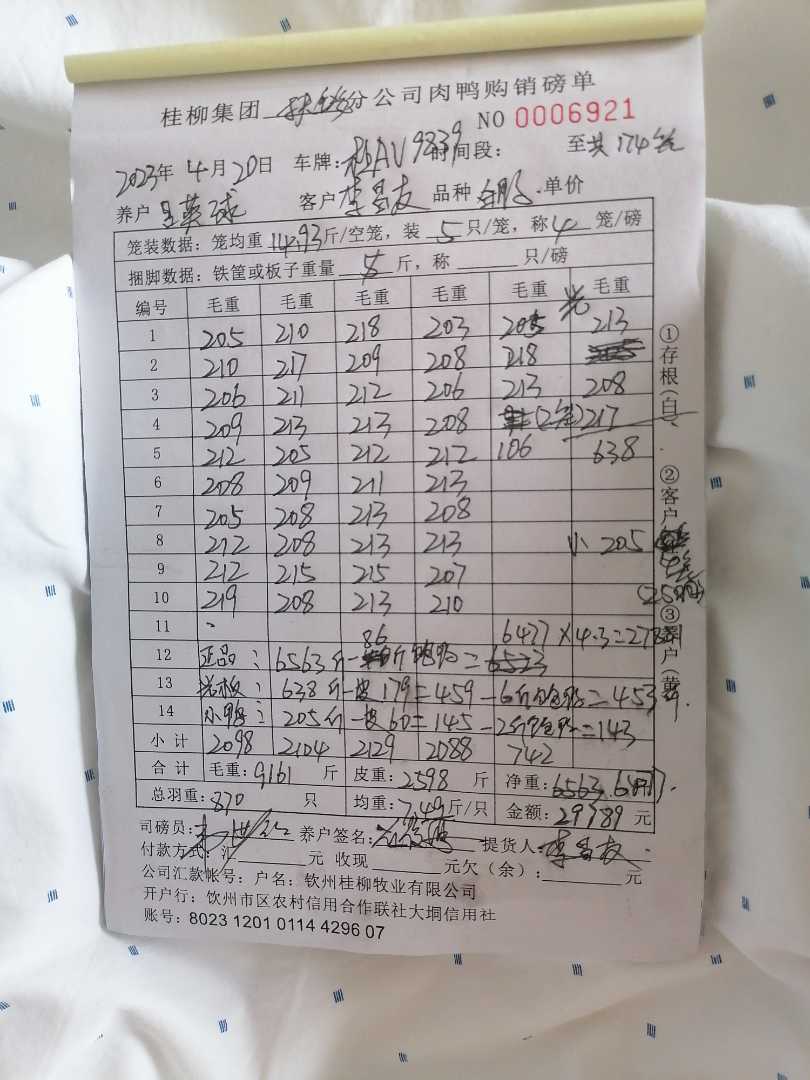 桂柳集团 分公司肉鸭购销磅单
NO 0006921
2023年 4月 20日 车牌: AV9839 时间段: 至共 174笼
养户 英球 客户 李昌友 品种 单价
笼装数据: 笼均重 14.93 斤/空笼, 装 5 只/笼, 称 4 笼/磅
捆脚数据: 铁筐或板子重量 斤, 称 只/磅
编号 毛重 毛重 毛重 毛重 毛重 毛重
1 205 210 218 203 205 光 213
2 210 217 209 208 218
3 206 211 212 206 213 208
4 209 213 213 208 (2笼) 217
5 212 205 212 212 106 638
6 208 209 211 213
7 205 208 213 208
8 212 208 213 213 小 205
9 212 215 215 207
10 219 208 213 210
11 86 6477×4.3=
12 正品: 6563斤
13 光板: 638斤-皮179=459-6斤 =453斤
14 小鸭: 205斤-皮60=145-2斤 =143
小计 2098 2104 2129 2088 742
合计 毛重: 9161 斤 皮重: 2598 斤 净重: 6563
总羽重: 870 只 均重: 7.49 斤/只 金额: 29789 元
司磅员: 养户签名: 提货人: 李昌友
付款方式: 汇 元 收现 元欠(余): 元
公司汇款帐号: 户名: 钦州桂柳牧业有限公司
开户行: 钦州市区农村信用合作联社大垌信用社
账号: 8023 1201 0114 4296 07
①存根(白) ②客户 ③养户(黄)